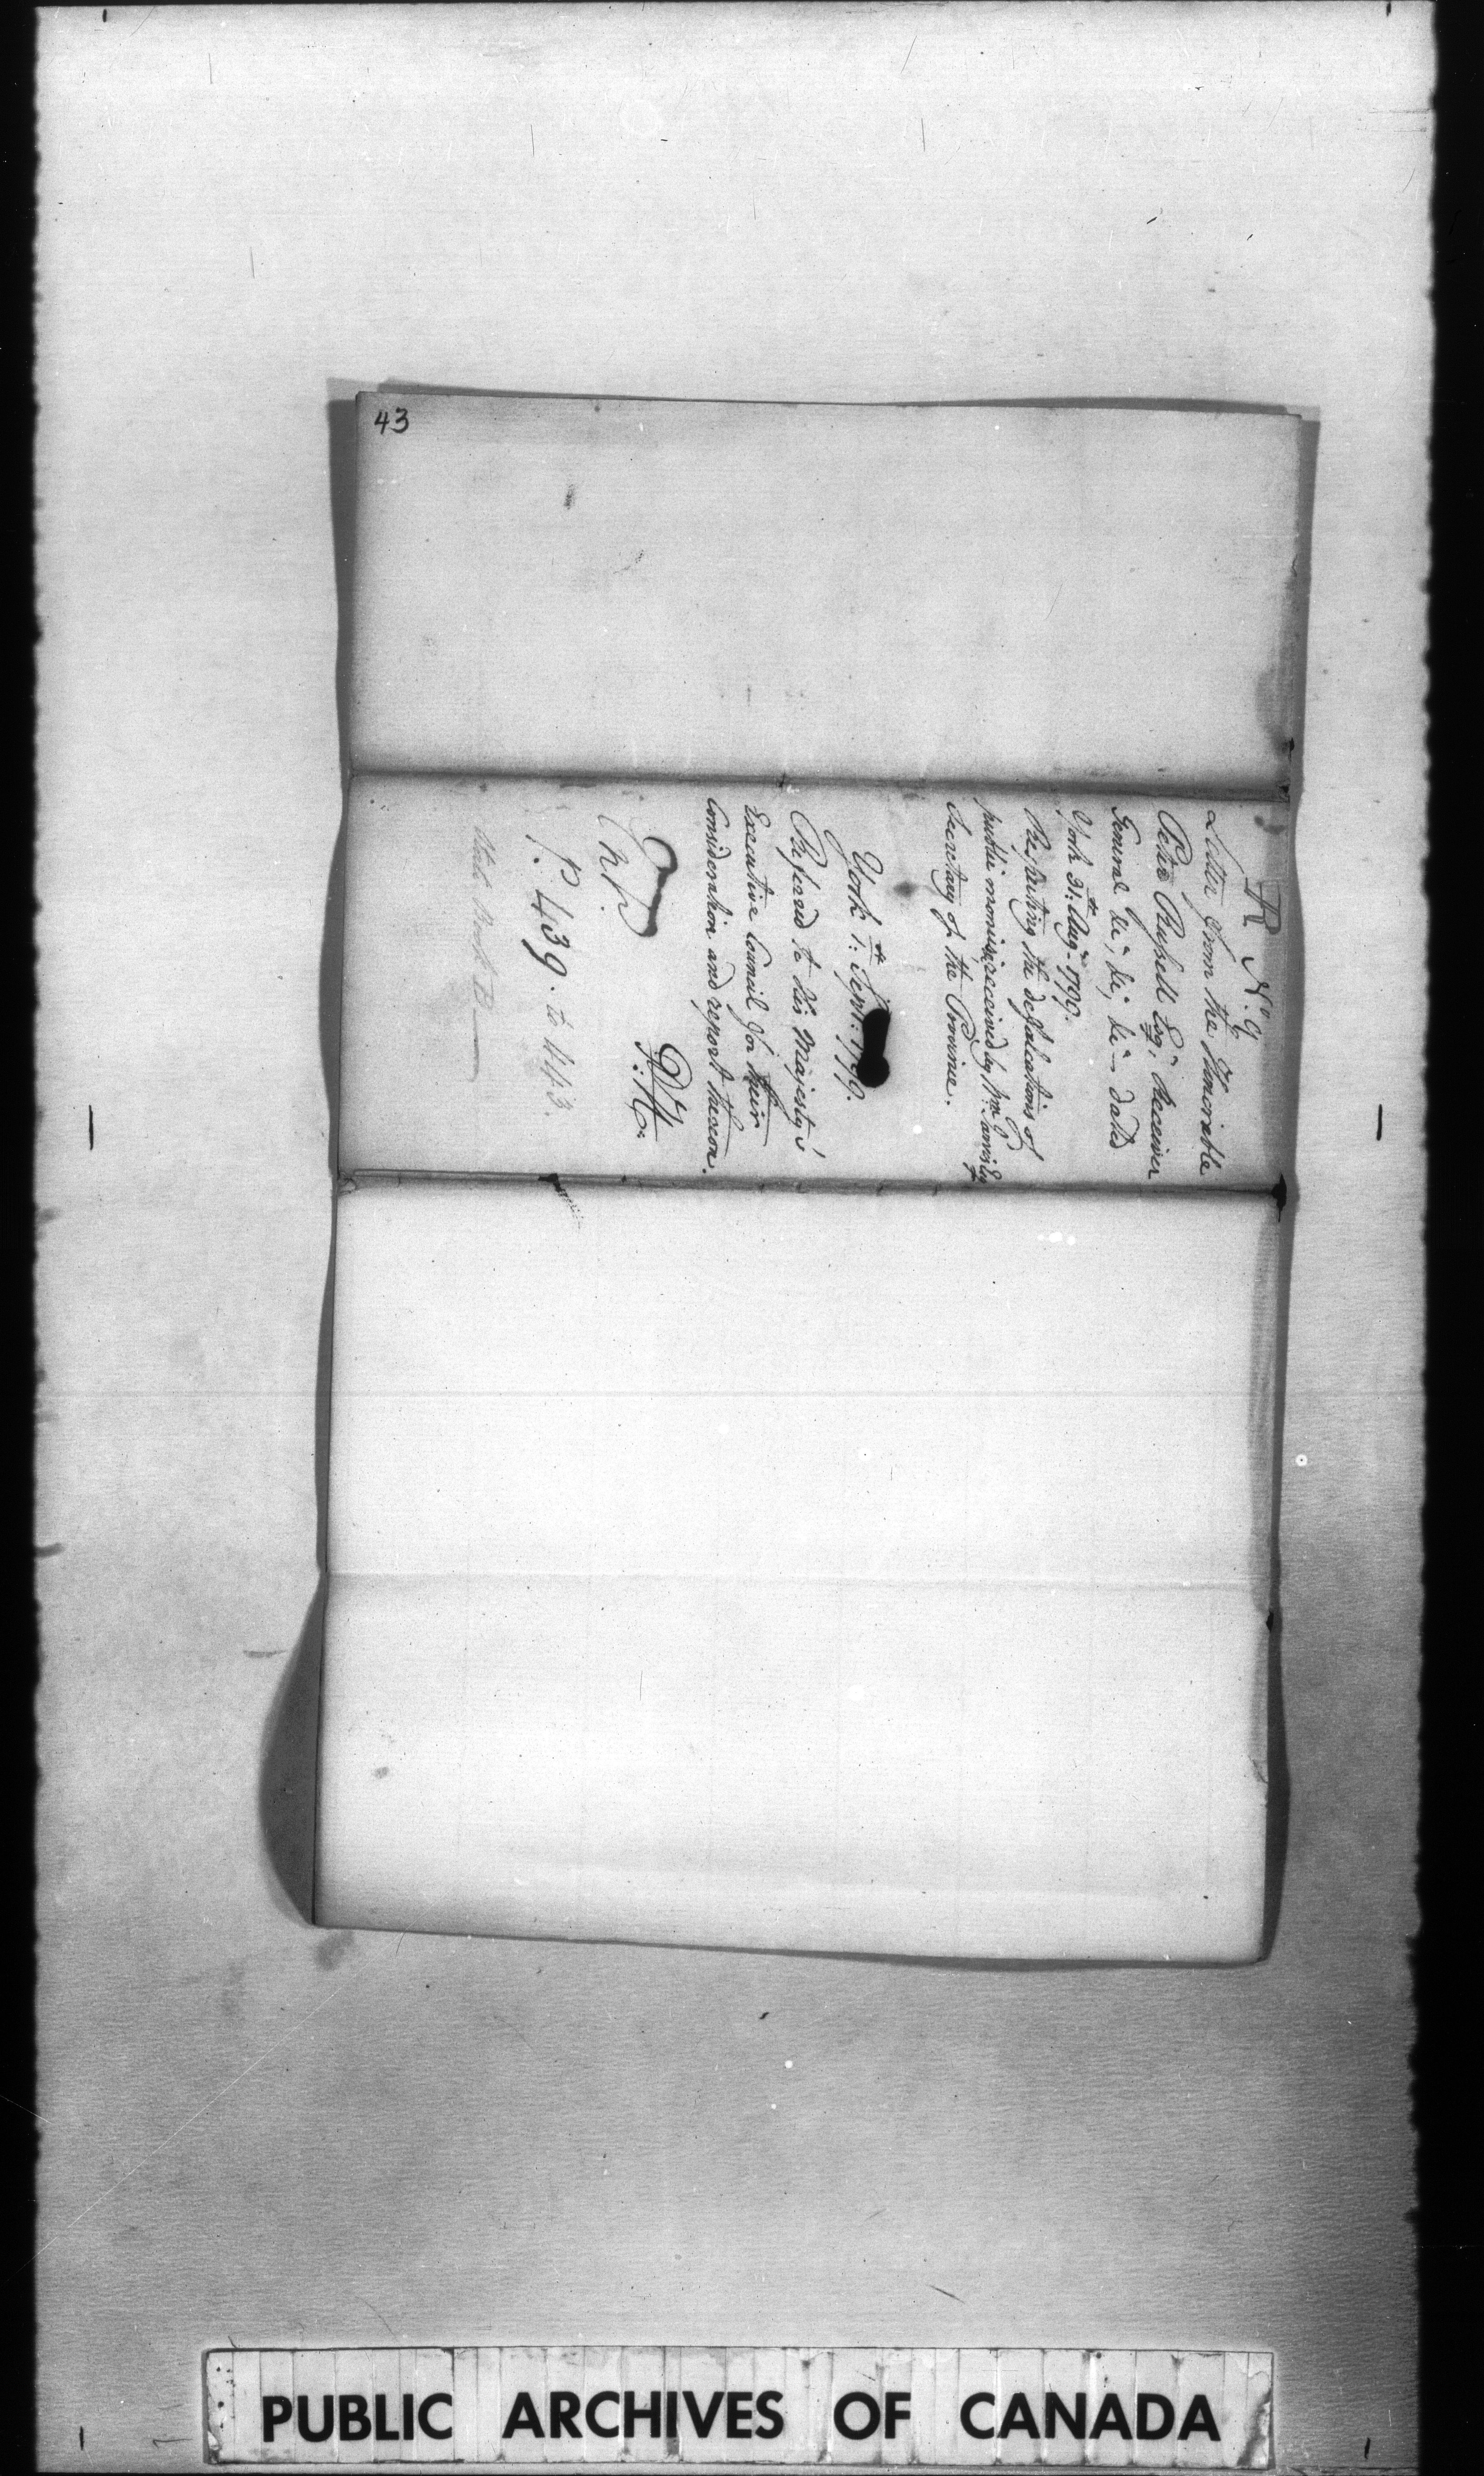 43
R N.o 9
Letter from the Honorable
Peter Russell Esq; Receiver
General &c, &c, &c - dated
York 31st Augt 1799.
Respecting the defalcations of
public monies, received by Wm Jarvis Esq
Secretary of the Province.
York 1st Sept: 1799.
Refered to His Majesty's
Executive Council for their
Consideration and report thereon.
P.H.
P. 439. to 443.
State Book B
PUBLIC ARCHIVES OF CANADA